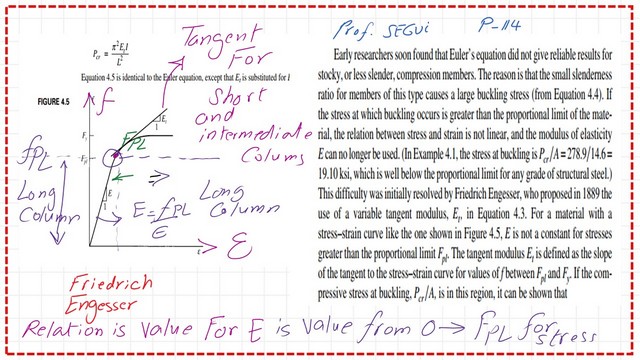 Prof. SEGUI P-114
Tangent
For
Short
and
intermediate
Colums
P_cr = π²E_tI / L²
Equation 4.5 is identical to the Euler equation, except that E_t is substituted for
FIGURE 4.5
f
E_t
1
F_y
F_PL
fPL
F_pl
Long
Column
E
1
E = fPL / ε
Long
Column
ε
ε
Friedrich
Engesser
Early researchers soon found that Euler's equation did not give reliable results for
stocky, or less slender, compression members. The reason is that the small slenderness
ratio for members of this type causes a large buckling stress (from Equation 4.4). If
the stress at which buckling occurs is greater than the proportional limit of the mate-
rial, the relation between stress and strain is not linear, and the modulus of elasticity
E can no longer be used. (In Example 4.1, the stress at buckling is P_cr/A = 278.9/14.6 =
19.10 ksi, which is well below the proportional limit for any grade of structural steel.)
This difficulty was initially resolved by Friedrich Engesser, who proposed in 1889 the
use of a variable tangent modulus, E_t, in Equation 4.3. For a material with a
stress–strain curve like the one shown in Figure 4.5, E is not a constant for stresses
greater than the proportional limit F_pl. The tangent modulus E_t is defined as the slope
of the tangent to the stress–strain curve for values of f between F_pl and F_y. If the com-
pressive stress at buckling, P_cr/A, is in this region, it can be shown that
Relation is Value For E is Value from 0 → FPL for stress